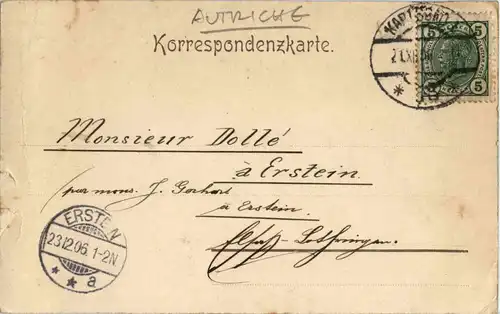 AUTRICHE
Korrespondenzkarte.
5 5
5 5
Monsieur Dollé
à Erstein
(par mons. J. Gerhart
à Erstein.
Elsaß-Lothringen.
ERSTEIN
23.12.06. 1-2N
* * a